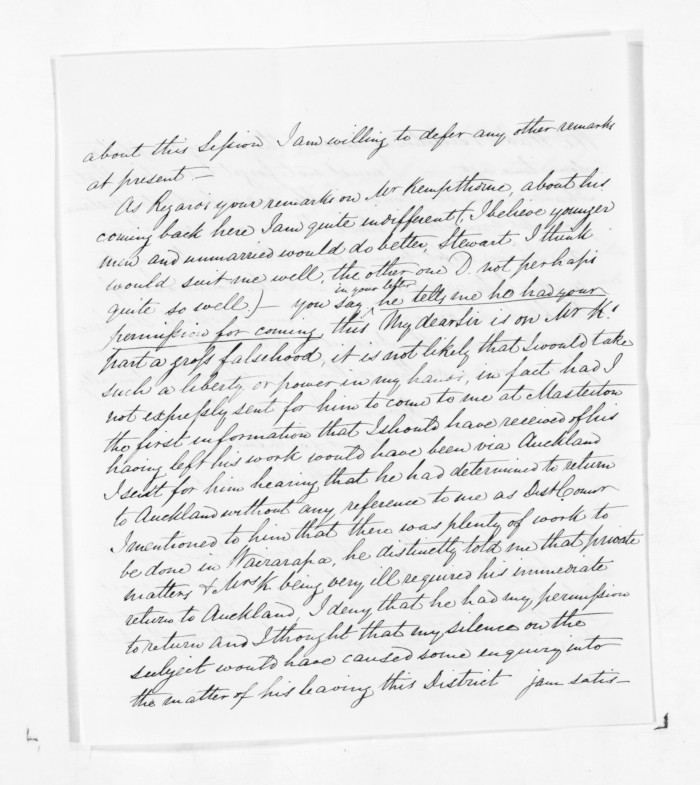 about this Session I am willing to defer any other remarks
at present —
As Regards your remarks on Mr Kempthorne, about his
coming back here I am quite indifferent (, I believe younger
men and unmarried would do better, Stewart I think
would suit me well, the other one D. not perhaps
quite so well.) — you say in your letter he tells me he had your
permission for coming, this My dear Sir is on Mr K's
part a gross falsehood, it is not likely that I would take
such a liberty, or power in my hands, in fact had I
not expressly sent for him to come to me at Masterton
the first information that I should have received of his
having left his work would have been via Auckland
I sent for him hearing that he had determined to return
to Auckland without any reference to me as Dist Commr
I mentioned to him that there was plenty of work to
be done in Wairarapa, he distinctly told me that private
matters & Mrs K being very ill required his immediate
return to Auckland, I deny that he had my permission
to return and I thought that my silence on the
subject would have caused some enquiry into
the matter of his leaving this District jam satis —